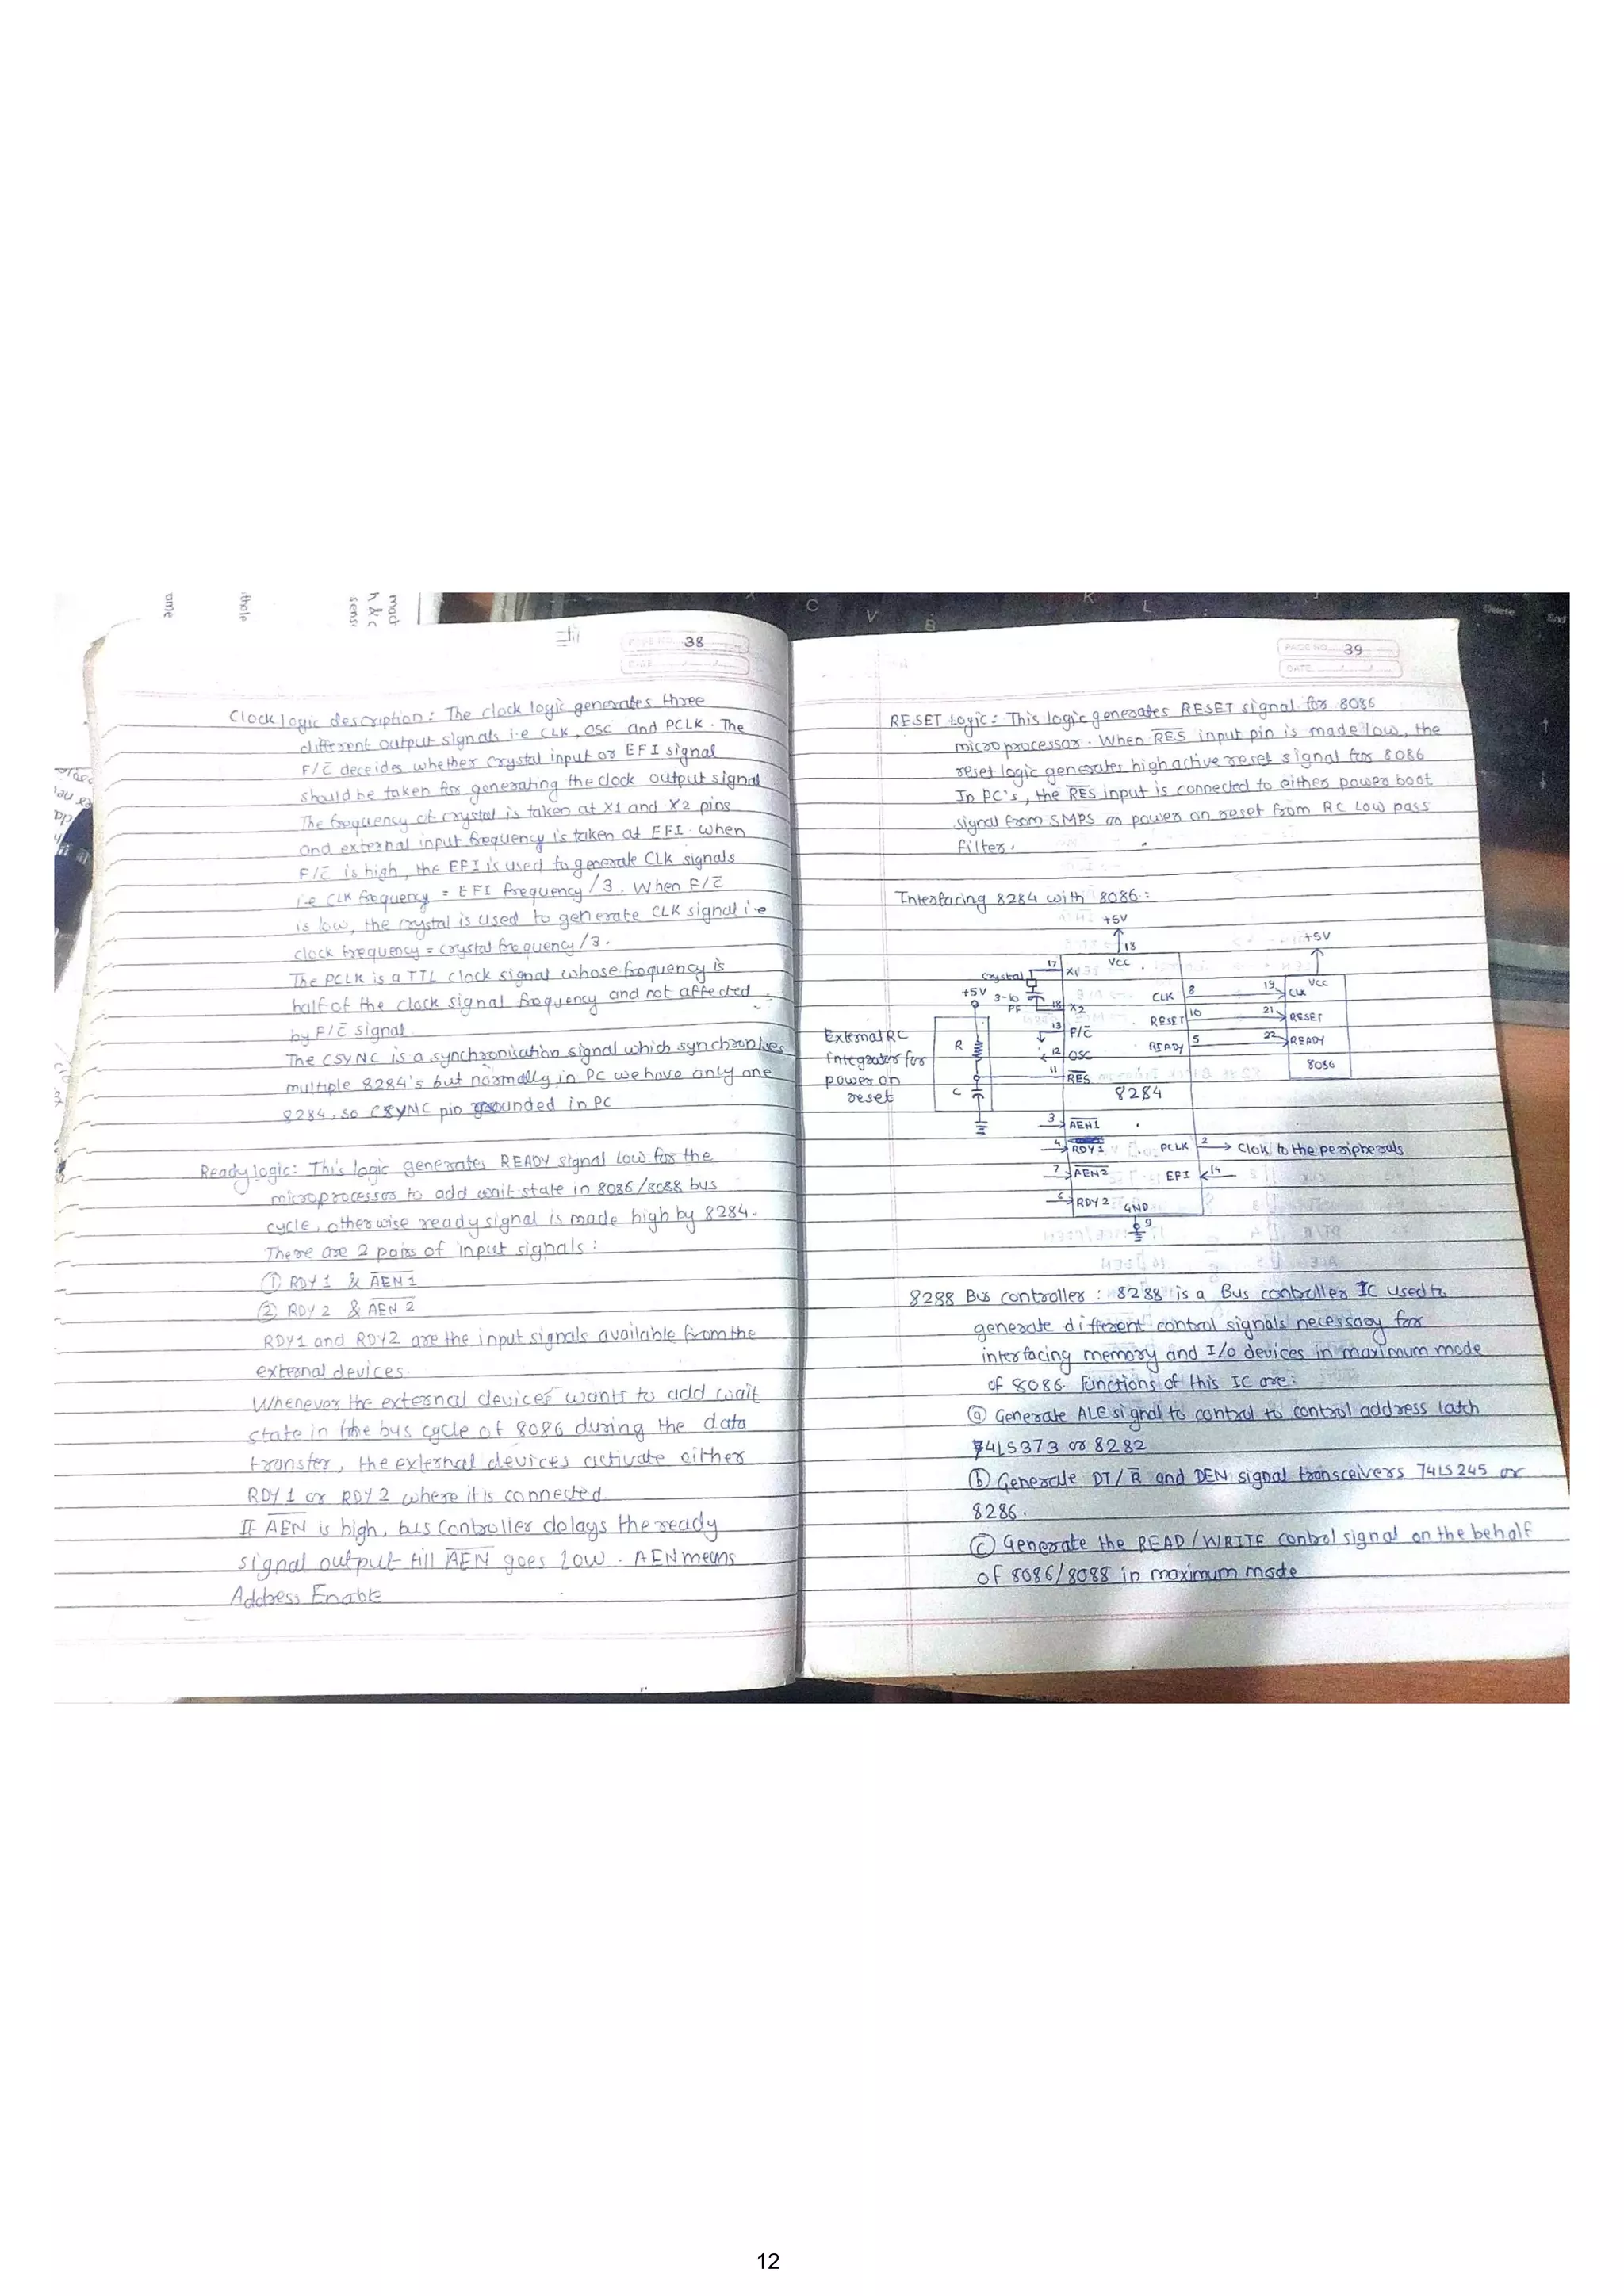 38
Clock logic description : The clock logic generates three
different output signals i.e CLK , OSC and PCLK . The
F/C̅ deceides whether crystal input or EFI signal
should be taken for generating the clock output signal
The frequency of crystal is taken at X1 and X2 pins
and external input frequency is taken at EFI . When
F/C̅ is high , the EFI is used to generate CLK signals
i.e CLK frequency = EFI frequency / 3 . When F/C̅
is low, the crystal is used to generate CLK signal i.e
clock frequency = crystal frequency / 3 .
The PCLK is a TTL clock signal whose frequency is
half of the clock signal frequency and not affected
by F/C̅ signal
The CSYNC is a synchronisation signal which synchronises
multiple 8284's but normally in PC we have only one
8284, so CSYNC pin grounded in PC
Ready logic : This logic generates READY signal low for the
microprocessor to add wait state in 8086/8088 bus
cycle , otherwise ready signal is made high by 8284 .
There are 2 pairs of input signals :
① RDY 1 & A̅E̅N̅ 1̅
② RDY 2 & A̅E̅N̅ 2̅
RDY1 and RDY2 are the input signals available from the
external devices.
Whenever the external devices wants to add wait
state in the bus cycle of 8086 during the data
transfer , the external devices activate either
RDY 1 or RDY 2 where it is connected.
If A̅E̅N̅ is high , bus Controller delays the ready
signal output till A̅E̅N̅ goes low . AEN means
Address Enable
PAGE NO. 39
DATE
RESET Logic : This logic generates RESET signal for 8086
microprocessor . When R̅E̅S̅ input pin is made low , the
reset logic generates high active reset signal for 8086
In PC's , the R̅E̅S̅ input is connected to either power boot
signal from SMPS or power on reset from RC Low pass
filter .
Interfacing 8284 with 8086 :
+5V
18
VCC
+5V
VCC
Crystal
17
X1
+5V
3-10
PF
18
X2
CLK 8
19 CLK
13 F/C̅
RESET 10
21 RESET
External RC
integrator for
power on
reset
R
C
12 OSC
READY 5
22 READY
11 R̅E̅S̅
8284
8086
3 A̅E̅N̅1̅
4 RDY 1
PCLK 2 → Clok to the peripherals
7 A̅E̅N̅2̅
EFI 14
6 RDY 2
GND
9
8288 Bus controller : 8288 is a Bus controller IC used to
generate different control signals necessary for
interfacing memory and I/O devices in maximum mode
of 8086. Functions of this IC are :
ⓐ Generate ALE signal to control to control address latch
74LS373 or 8282
ⓑ Generate DT/R̅ and DEN signal transceivers 74LS245 or
8286 .
ⓒ Generate the READ / WRITE control signal on the behalf
of 8086/8088 in maximum mode
12